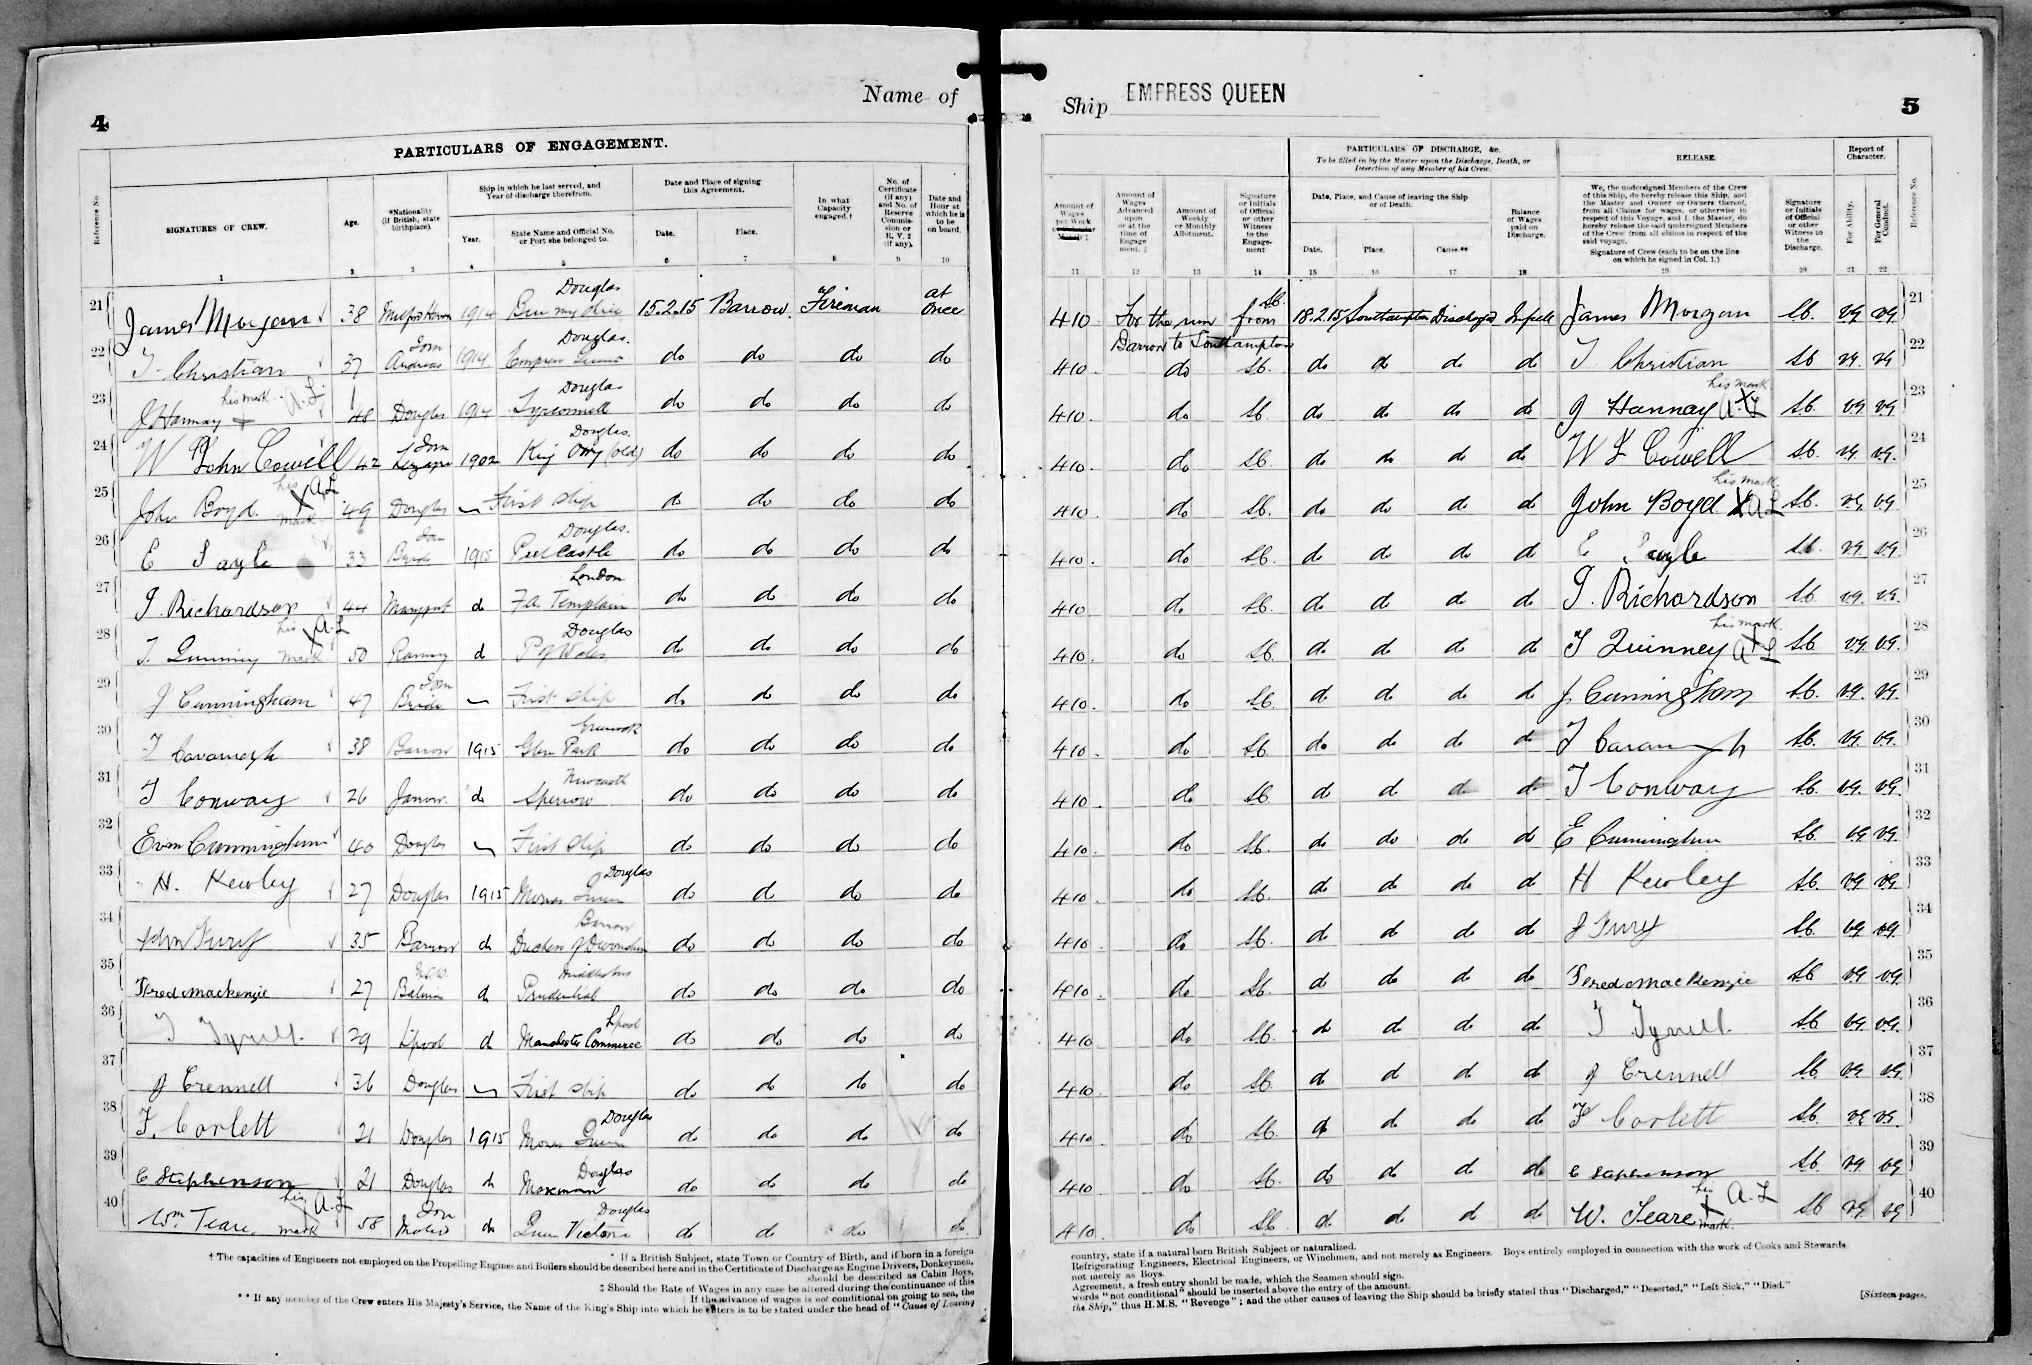 Name of
Ship EMPRESS QUEEN
4
5
PARTICULARS OF ENGAGEMENT.
Reference No.
SIGNATURES OF CREW.
Age.
*Nationality (If British, state birthplace).
Ship in which he last served, and Year of discharge therefrom.
Year.
State Name and Official No. or Port she belonged to.
Date and Place of signing this Agreement.
Date.
Place.
In what Capacity engaged.†
No. of Certificate (if any) and No. of Reserve Commission or R.V.2 (if any).
Date and Hour at which he is to be on board.
1 2 3 4 5 6 7 8 9 10
21 James Morgan 38 Milford Haven 1914 Douglas Ben my Chree 15.2.15 Barrow Fireman at once
22 T Christian 37 Iom Andreas 1914 Douglas. Empress Queen do do do do
23 J Hannay his mark A.L 48 Douglas 1914 Douglas Tyrconnell do do do do
24 W John Cowell 42 Iom 1902 Douglas. King Orry (old) do do do do
25 John Boyd his X mark A L 49 Douglas – First ship do do do do
26 E Sayle 33 Iom Bride 1915 Douglas. Peel Castle do do do do
27 J. Richardson 44 Maryport do London do do do do
28 T. Quinney his X mark A.L 50 Ramsey do Douglas P of Wales do do do do
29 J Cunningham 47 Iom Bride – First ship do do do do
30 T Cavanagh 38 Barrow 1915 Greenock Glen Park do do do do
31 T Conway 26 Jarrow do Newcastle do do do do
32 Evan Cunningham 40 Douglas – First ship do do do do
33 H. Kewley 27 Douglas 1915 Douglas Monas Queen do do do do
34 John Furey 35 Barrow do Barrow Duchess of Devonshire do do do do
35 Fred Mackenzie 27 do Middlesbro Prudential do do do do
36 T Tyrrell 29 Lpool do Lpool Manchester Commerce do do do do
37 J Crennell 36 Douglas – First ship do do do do
38 F. Corlett 21 Douglas 1915 Douglas Monas Queen do do do do
39 C Stephenson 21 Douglas do Douglas Manxman do do do do
40 Wm Teare his X mark A.L 58 Iom do Douglas Queen Victoria do do do do
† The capacities of Engineers not employed on the Propelling Engines and Boilers should be described here and in the Certificate of Discharge as Engine Drivers, Donkeymen,
* If a British Subject, state Town or Country of Birth, and if born in a foreign
should be described as Cabin Boys,
‡ Should the Rate of Wages in any case be altered during the continuance of this
If the advance of wages is not conditional on going to sea, the
** If any member of the Crew enters His Majesty's Service, the Name of the King's Ship into which he enters is to be stated under the head of "Cause of Leaving
Amount of Wages per Week
Amount of Wages Advanced upon or at the time of Engagement.‡
Amount of Weekly or Monthly Allotment.
Signature or Initials of Official or other Witness to the Engagement
PARTICULARS OF DISCHARGE, &c.
To be filled in by the Master upon the Discharge, Death, or Desertion of any Member of his Crew.
Date, Place, and Cause of leaving the Ship or of Death.
Date.
Place.
Cause.**
Balance of Wages paid on Discharge.
RELEASE.
We, the undersigned Members of the Crew of this Ship, do hereby release this Ship, and the Master and Owner or Owners thereof, from all Claims for wages, or otherwise in respect of this Voyage, and I, the Master, do hereby release the said undersigned Members of the Crew from all claims in respect of the said voyage.
Signature of Crew (each to be on the line on which he signed in Col. 1.)
Signature or Initials of Official or other Witness to the Discharge.
Report of Character.
For Ability.
For General Conduct.
Reference No.
11 12 13 14 15 16 17 18 19 20 21 22
410. For the run from Barrow to Southampton 18.2.15 Southampton Discharged In full James Morgan VG VG 21
410. do do do do do T Christian VG. VG 22
410. do do do do do J Hannay his mark X A.L VG VG 23
410. do do do do do W J Cowell VG VG. 24
410. do do do do do John Boyd his mark X A L VG VG 25
410. do do do do do E Sayle VG VG 26
410 do do do do do J. Richardson VG. VG. 27
410. do do do do do T Quinney his mark X A L VG VG. 28
410. do do do do do J Cunningham VG. VG. 29
410. do do do do do T Cavanagh VG. VG. 30
410. do do do do do T Conway VG. VG. 31
410. do do do do do E Cunningham VG VG. 32
410. do do do do do H Kewley VG VG. 33
410. do do do do do J Furey VG VG. 34
410. do do do do do Fred Mackenzie VG VG. 35
410 do do do do do T Tyrrell VG VG. 36
410. do do do do do J Crennell VG. VG. 37
410. do do do do do F Corlett VG VG. 38
410. do do do do do C Stephenson VG VG 39
410. do do do do do W. Teare his X mark. A.L VG VG 40
country, state if a natural born British Subject or naturalized.
Refrigerating Engineers, Electrical Engineers, or Winchmen, and not merely as Engineers. Boys entirely employed in connection with the work of Cooks and Stewards
not merely as Boys.
Agreement, a fresh entry should be made, which the Seamen should sign.
words "not conditional" should be inserted above the entry of the amount.
the Ship," thus H.M.S. "Revenge"; and the other causes of leaving the Ship should be briefly stated thus "Discharged," "Deserted," "Left Sick," "Died."
[Sixteen pages.